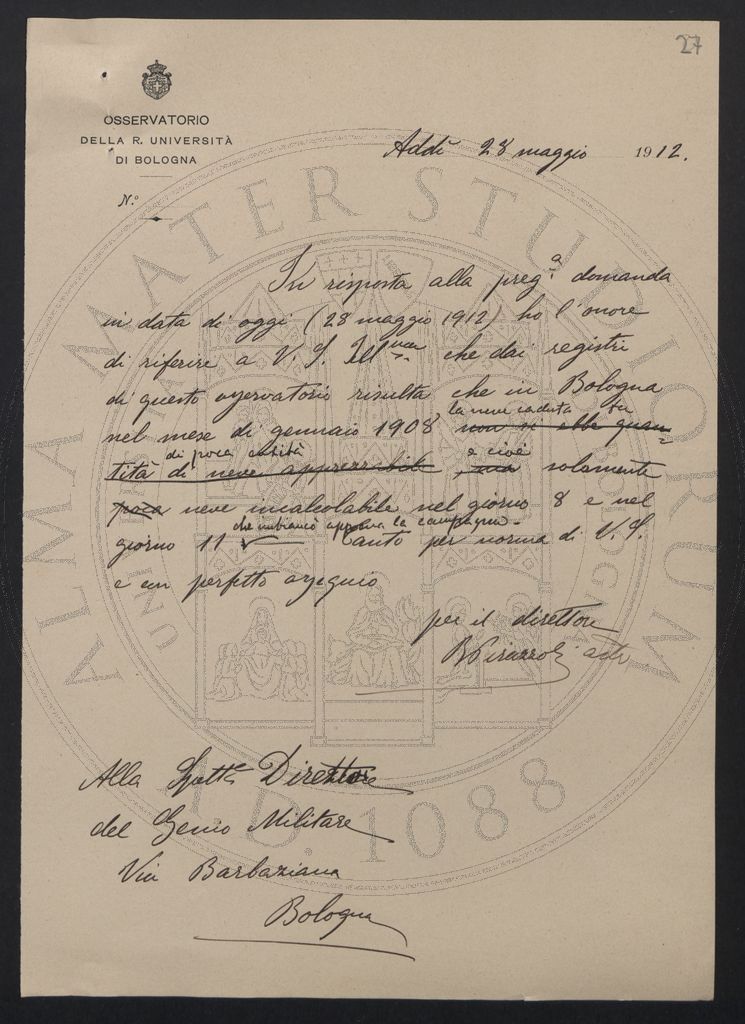 27
OSSERVATORIO
DELLA R. UNIVERSITÀ
DI BOLOGNA
N.º
Addì 28 maggio 1912.
In risposta alla preg.ª domanda
in data di oggi (28 maggio 1912) ho l'onore
di riferire a V. S. Ill.ma che dai registri
di questo osservatorio risulta che in Bologna
la neve caduta fu
nel mese di gennaio 1908 non si ebbe quan=
di poca entità e cioè
tità di neve apprezzabile, ma solamente
poca neve incalcolabile nel giorno 8 e nel
che imbiancò appena la campagna.
giorno 11 Tanto per norma di V. S.
e con perfetto ossequio
per il direttore
Alla Direttore
del Genio Militare
Via Barbaziana
Bologna
ALMA MATER STUDIORUM
A.D. 1088